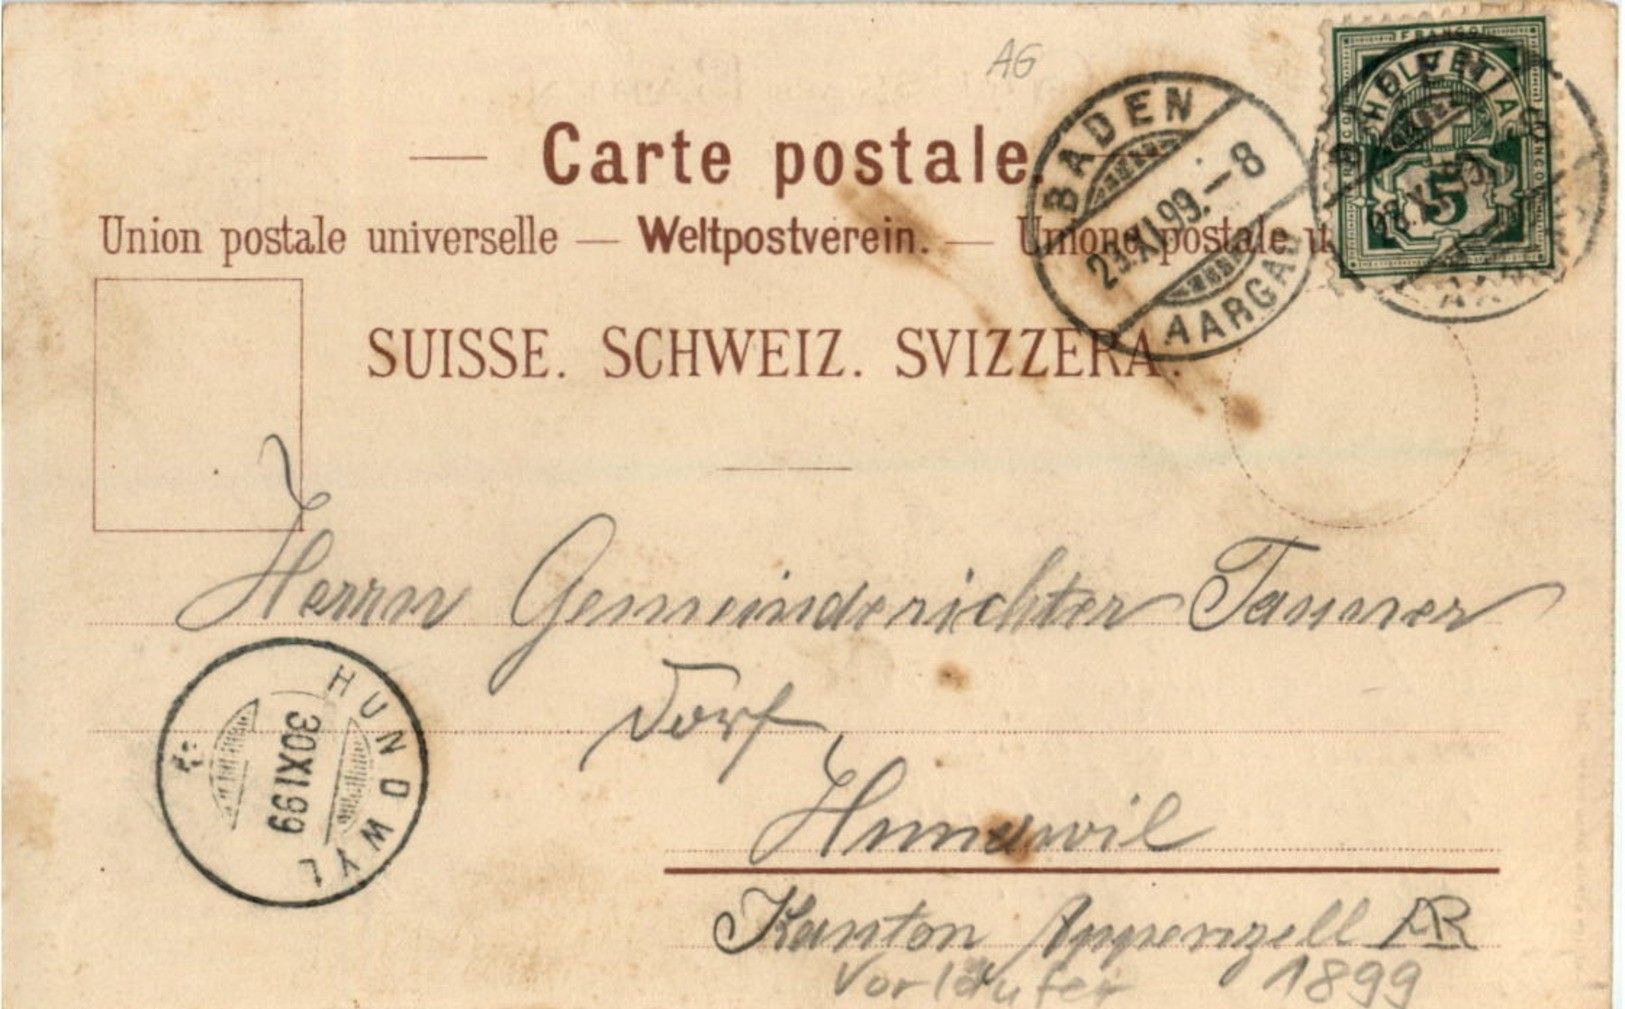 AG
— Carte postale.
Union postale universelle — Weltpostverein. — Unione postale u
SUISSE. SCHWEIZ. SVIZZERA.
BADEN
23.XI.99.–8
AARGAU
FRANCO
HELVETIA
5
Herrn Gemeinderichter Tanner
Dorf
Hundwil
Kanton Appenzell AR
Vorläufer 1899
HUNDWYL
30XI99